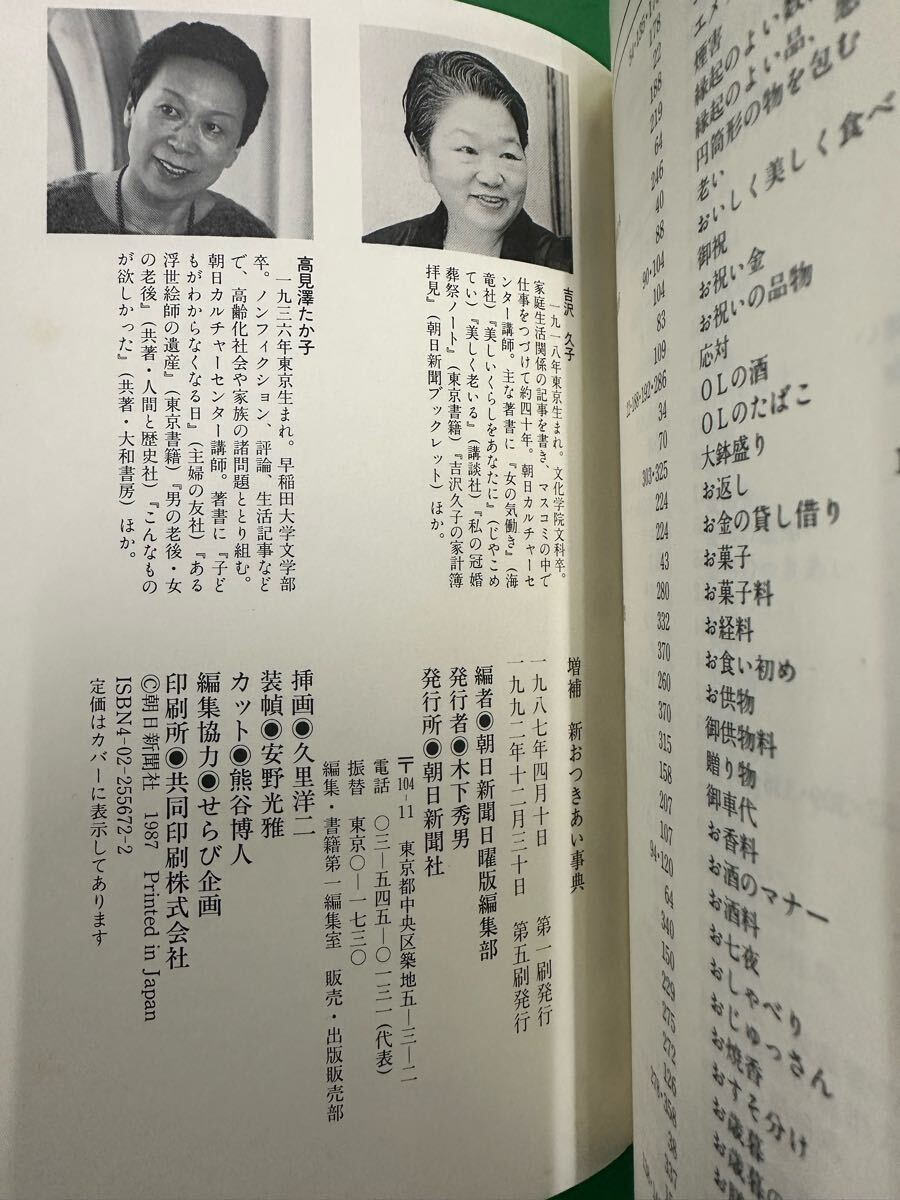 吉沢 久子
一九一八年東京生まれ。文化学院文科卒。
家庭生活関係の記事を書き、マスコミの中で
仕事をつづけて約四十年。朝日カルチャーセ
ンター講師。主な著書に『女の気働き』(海
竜社)『美しいくらしをあなたに』(じゃこめ
てい)『美しく老いる』(講談社)『私の冠婚
葬祭ノート』(東京書籍)『吉沢久子の家計簿
拝見』(朝日新聞ブックレット)ほか。
高見澤たか子
一九三六年東京生まれ。早稲田大学文学部
卒。ノンフィクション、評論、生活記事など
で、高齢化社会や家族の諸問題ととり組む。
朝日カルチャーセンター講師。著書に『子ど
もがわからなくなる日』(主婦の友社)『ある
浮世絵師の遺産』(東京書籍)『男の老後・女
の老後』(共著・人間と歴史社)『こんなもの
が欲しかった』(共著・大和書房)ほか。
増補 新おつきあい事典
一九八七年四月十日 第一刷発行
一九九二年十二月三十日 第五刷発行
編者●朝日新聞日曜版編集部
発行者●木下秀男
発行所●朝日新聞社
〒104-11 東京都中央区築地五―三―二
電話 〇三―五五四五―〇一三一(代表)
振替 東京〇―一七三〇
編集・書籍第一編集室 販売・出版販売部
挿画●久里洋二
装幀●安野光雅
カット●熊谷博人
編集協力●せらび企画
印刷所●共同印刷株式会社
©朝日新聞社 1987 Printed in Japan
ISBN4-02-255672-2
定価はカバーに表示してあります
煙害
縁起のよい
縁起のよい品、
円筒形の物を包む
老い
おいしく美しく食べ
御祝
お祝い金
お祝いの品物
応対
OLの酒
OLのたばこ
大鉢盛り
お返し
お金の貸し借り
お菓子
お菓子料
お経料
お食い初め
お供物
御供物料
贈り物
御車代
お香料
お酒のマナー
お酒料
お七夜
おしゃべり
おじゅっさん
お焼香
おすそ分け
お歳暮
お歳暮の
178
22
188
219
64
246
40
88
90・104
104
83
109
34
70
303・325
224
224
43
280
332
370
260
370
315
158
207
107
94・120
64
340
150
229
275
272
126
38
337